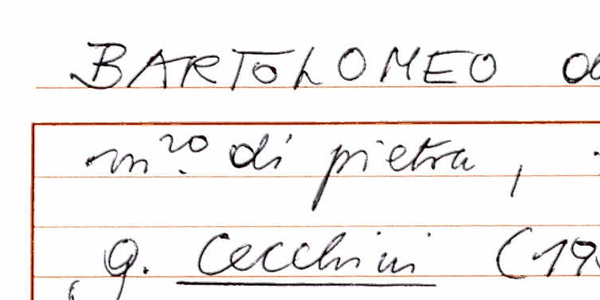 BARTOLOMEO
m.ro di pietra,
G. Cecchini (19